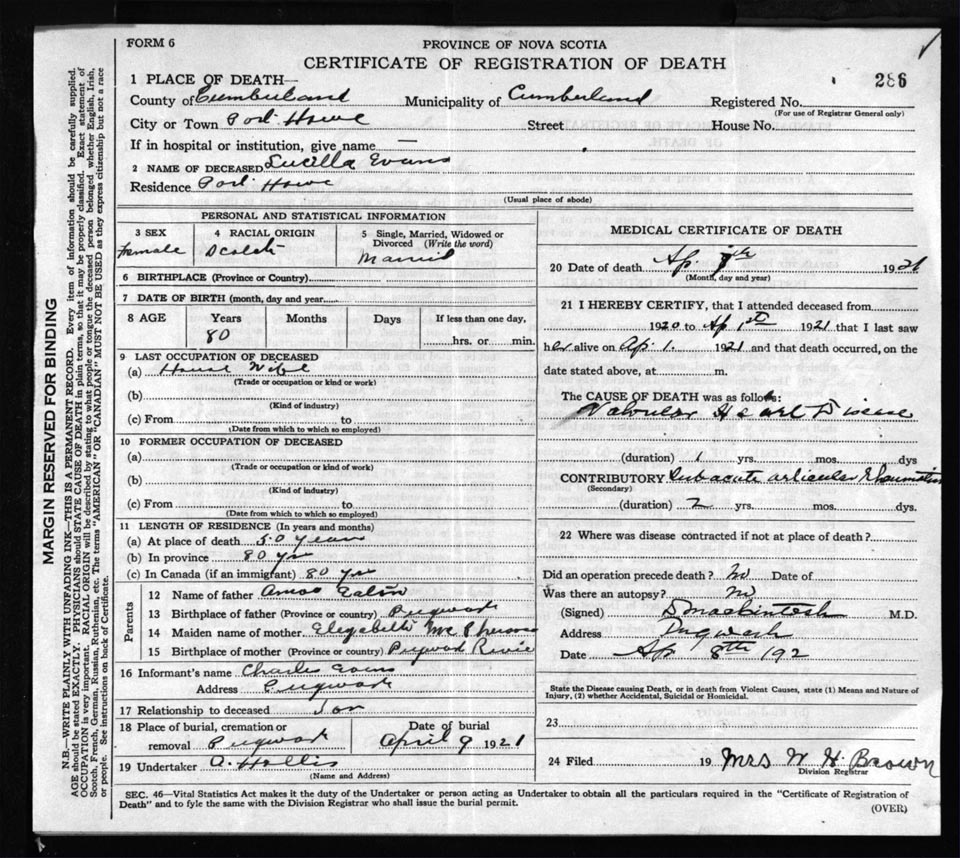 FORM 6
PROVINCE OF NOVA SCOTIA
CERTIFICATE OF REGISTRATION OF DEATH
286
1 PLACE OF DEATH—
County of Cumberland Municipality of Cumberland Registered No.
(For use of Registrar General only)
City or Town Port Howe Street House No.
If in hospital or institution, give name —
2 NAME OF DECEASED Lucilla Evans
Residence Port Howe
(Usual place of abode)
PERSONAL AND STATISTICAL INFORMATION
3 SEX 4 RACIAL ORIGIN 5 Single, Married, Widowed or Divorced (Write the word)
Female Scotch Married
6 BIRTHPLACE (Province or Country)
7 DATE OF BIRTH (month, day and year
8 AGE Years Months Days If less than one day,
80 hrs. or min.
9 LAST OCCUPATION OF DECEASED
(a) House Wife
(Trade or occupation or kind or work)
(b)
(Kind of industry)
(c) From to
(Date from which to which so employed)
10 FORMER OCCUPATION OF DECEASED
(a)
(Trade or occupation or kind of work)
(b)
(Kind of industry)
(c) From to
(Date from which to which so employed)
11 LENGTH OF RESIDENCE (In years and months)
(a) At place of death 50 years
(b) In province 80 yrs
(c) In Canada (if an immigrant) 80 yrs
Parents
12 Name of father Amos
13 Birthplace of father (Province or country) Pugwash
14 Maiden name of mother Elizabeth
15 Birthplace of mother (Province or country) Pugwash River
16 Informant's name Charles Evans
Address Pugwash
17 Relationship to deceased Son
18 Place of burial, cremation or removal Pugwash
Date of burial April 9 1921
19 Undertaker A. Hollis
(Name and Address)
MEDICAL CERTIFICATE OF DEATH
20 Date of death Ap. 1921
(Month, day and year)
21 I HEREBY CERTIFY, that I attended deceased from
1920 to Ap 1st 1921 that I last saw
her alive on Ap. 1. 1921 and that death occurred, on the
date stated above, at m.
The CAUSE OF DEATH was as follows:
Valvular Heart Disease
(duration) 1 yrs. mos. dys
CONTRIBUTORY Subacute articular Rheumatism
(Secondary)
(duration) 2 yrs. mos. dys.
22 Where was disease contracted if not at place of death?
Did an operation precede death? No Date of
Was there an autopsy? No
(Signed) D Mackintosh M.D.
Address Pugwash
Date Ap 8th 192
State the Disease causing Death, or in death from Violent Causes, state (1) Means and Nature of
Injury, (2) whether Accidental, Suicidal or Homicidal.
23
24 Filed 19 Mrs W H Brown
Division Registrar
SEC. 46—Vital Statistics Act makes it the duty of the Undertaker or person acting as Undertaker to obtain all the particulars required in the "Certificate of Registration of
Death" and to fyle the same with the Division Registrar who shall issue the burial permit.
(OVER)
MARGIN RESERVED FOR BINDING
N.B.—WRITE PLAINLY WITH UNFADING INK—THIS IS A PERMANENT RECORD. Every item of information should be carefully supplied.
AGE should be stated EXACTLY. PHYSICIANS should STATE CAUSE OF DEATH in plain terms, so that it may be properly classified. Exact statement of
OCCUPATION is very important. RACIAL ORIGIN will be described by stating to what people or tongue the deceased person belonged whether English, Irish,
Scotch, French, German, Russian, Ruthenian, etc. The terms "AMERICAN" OR "CANADIAN" MUST NOT BE USED as they express citizenship but not a race
or people. See instructions on back of Certificate.